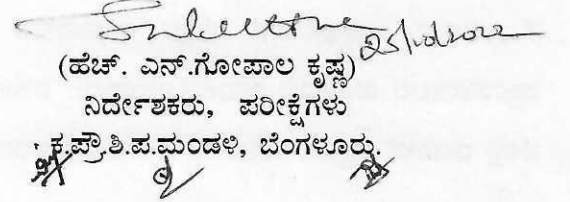 25/10/2022
(ಹೆಚ್. ಎನ್.ಗೋಪಾಲ ಕೃಷ್ಣ)
ನಿರ್ದೇಶಕರು, ಪರೀಕ್ಷೆಗಳು
ಕ.ಪ್ರೌ.ಶಿ.ಪ.ಮಂಡಳಿ, ಬೆಂಗಳೂರು.